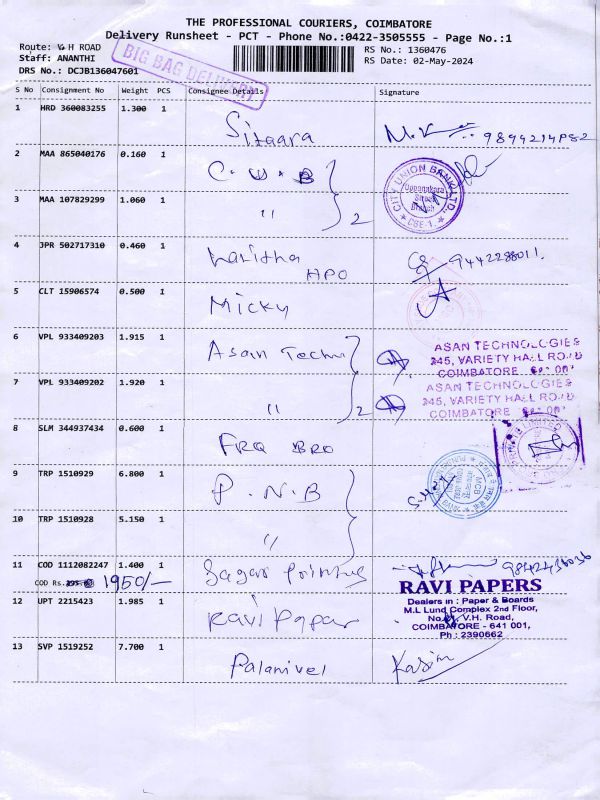 THE PROFESSIONAL COURIERS, COIMBATORE
Delivery Runsheet - PCT - Phone No.:0422-3505555 - Page No.:1
Route: V H ROAD
RS No.: 1360476
Staff: ANANTHI
RS Date: 02-May-2024
DRS No.: DCJB136047601
BIG BAG DELIVERY
S No Consignment No Weight PCS Consignee Details Signature
1 HRD 360083255 1.300 1 Sitaara 9894214982
2 MAA 865040176 0.160 1 C.U.B
CITY UNION BANK LTD.,
Oppanakara
Street
Branch
CBE-1
3 MAA 107829299 1.060 1 " 2
4 JPR 502717310 0.460 1 HPO 9442288011.
5 CLT 15906574 0.500 1 Micky
6 VPL 933409203 1.915 1 Asan Techn
ASAN TECHNOLOGIES
245, VARIETY HALL ROAD
COIMBATORE
7 VPL 933409202 1.920 1 " 2
ASAN TECHNOLOGIES
245, VARIETY HALL ROAD
COIMBATORE
8 SLM 344937434 0.600 1 FRQ BRO
9 TRP 1510929 6.800 1 P.N.B
10 TRP 1510928 5.150 1 "
11 COD 1112082247 1.400 1 Sagar Printing
COD Rs. 1950/-
12 UPT 2215423 1.985 1 Ravi Papar
RAVI PAPERS
Dealers in : Paper & Boards
M.L Lund Complex 2nd Floor,
V.H. Road,
COIMBATORE - 641 001,
Ph : 2390662
13 SVP 1519252 7.700 1 Palanivel Kasim